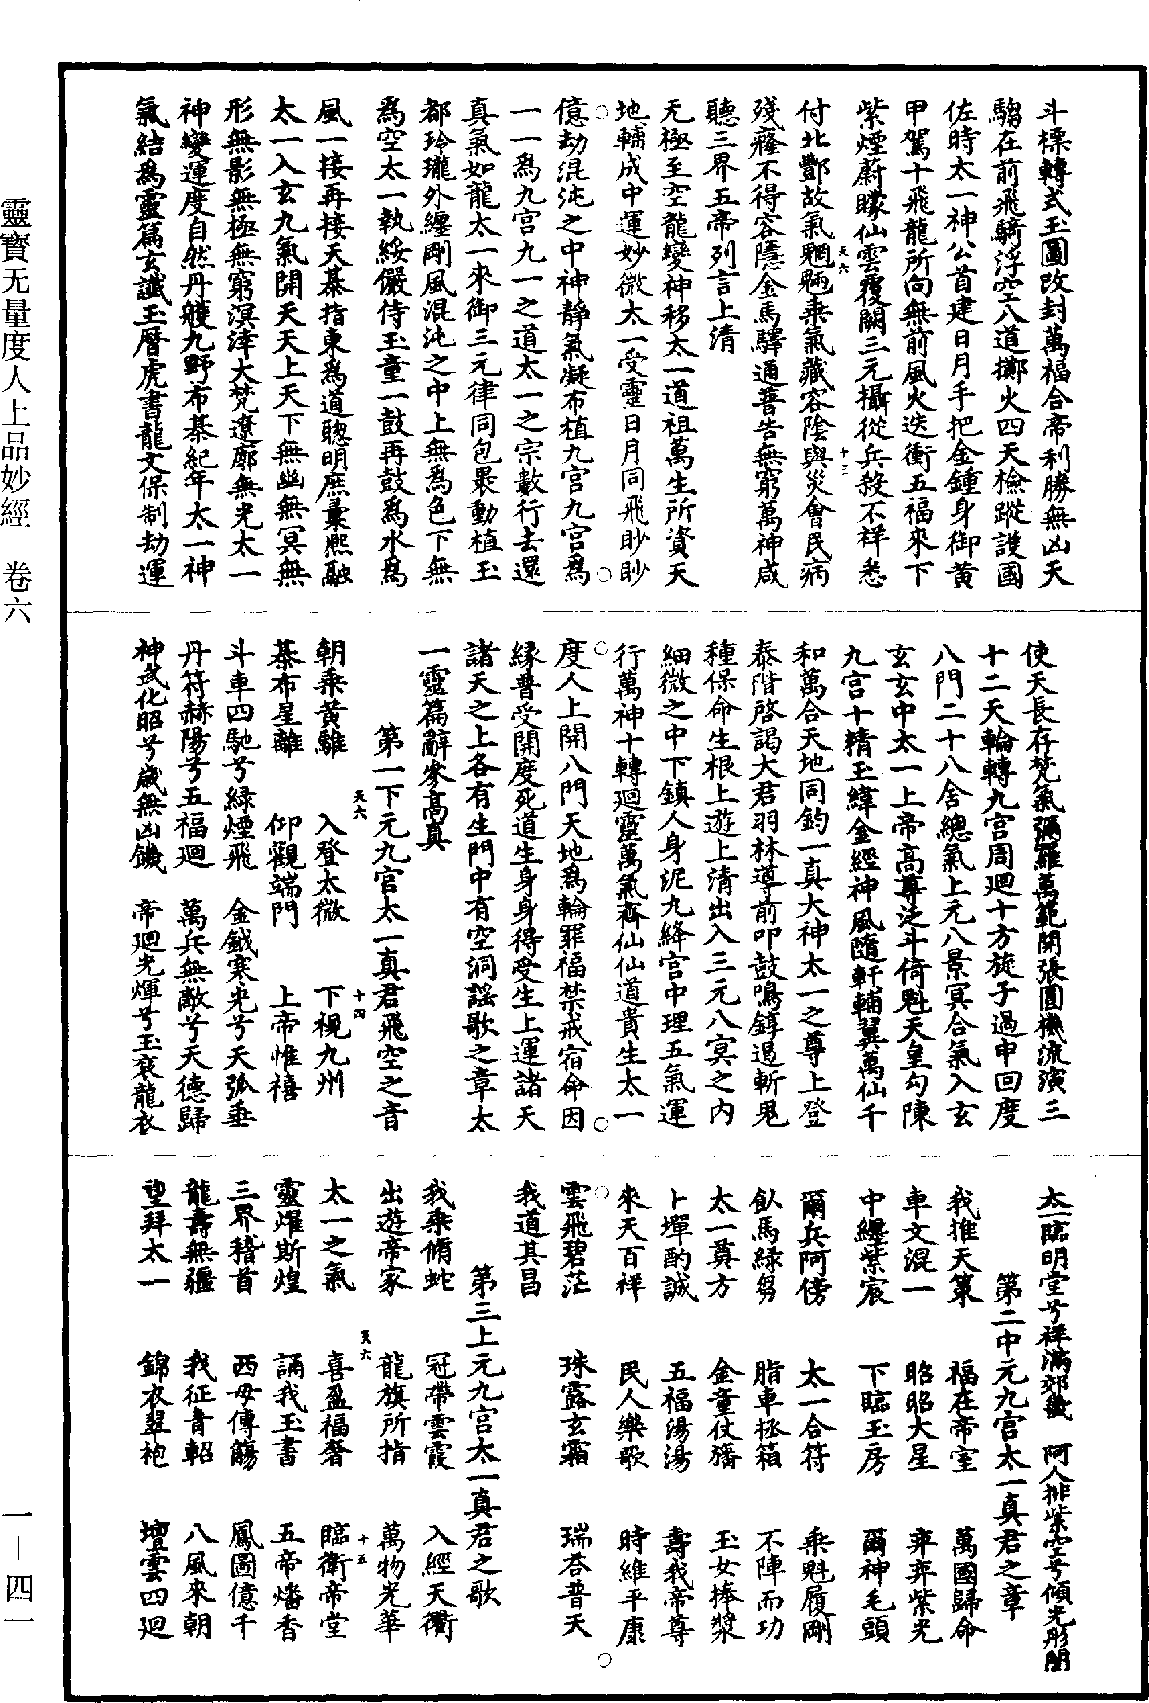 靈寶无量度人上品妙經 卷六
一—四一
斗標轉式玉圖改封萬福合帝利勝無凶天
騶在前飛騎浮空八道擲火四天檢蹤護國
佐時太一神公首建日月手把金鍾身御黄
甲駕十飛龍所向無前風火迭衝五福來下
紫煙蔚曚仙雲覆關三元攝從兵殺不祥悉
付北酆故氣魍魎乘氣藏容陰與災會民病
天六
十三
殘癃不得容隱金馬驛通普告無窮萬神咸
聽三界五帝列言上清
无極至空龍變神移太一道祖萬生所資天
地輔成中運妙微太一受靈日月同飛眇眇
億劫混沌之中神靜氣凝布植九宫九宫爲
一一爲九宫九一之道太一之宗數行去還
真氣如龍太一來御三元律同包暴動植玉
都玲瓏外纏剛風混沌之中上無爲色下無
爲空太一執綏儼侍玉童一鼓再鼓爲水爲
風一接再接天綦指東爲道聰明庶彙熙融
太一入玄九氣開天天上天下無幽無冥無
形無影無極無窮溟涬大梵遼廓無光太一
神變運度自然丹艧九野布綦紀年太一神
氣結爲靈篇玄讖玉曆虎書龍文保制劫運
使天長存梵氣彌羅萬範開張圓機流演三
十二天輪轉九宫周迴十方旋子過申回度
八門二十八舍總氣上元八景冥合氣入玄
玄玄中太一上帝高尊泛斗倚魁天皇勾陳
九宫十精玉緯金經神風隨軒輔翼萬仙千
和萬合天地同鈞一真大神太一之尊上登
泰階啓謁大君羽林導前叩鼓鳴錞遏斬鬼
種保命生根上遊上清出入三元八冥之内
細微之中下鎮人身泥九絳宫中理五氣運
行萬神十轉迴靈萬氣齊仙仙道貴生太一
度人上開八門天地爲輪罪福禁戒宿命因
緣普受開度死道生身身得受生上運諸天
諸天之上各有生門中有空洞謡歌之章太
一靈篇辭參高真
第一下元九宫太一真君飛空之音
天六
十四
朝乘黄騅 入登太微 下視九州
綦布星離 仰觀端門 上帝惟禧
斗車四馳兮綠煙飛 金鉞寒光兮天弧垂
丹符赫陽兮五福迴 萬兵無敵兮天德歸
神武化昭兮歲無凶饑 帝迴光煇兮玉衮龍衣
太一臨明堂兮祥滿郊畿 阿人排紫空兮傾光彤闈
第二中元九宫太一真君之章
我推天策 福在帝室 萬國歸命
車文混一 昭昭大星 弈弈紫光
中纒紫宸 下臨玉房 爾神毛頭
爾兵阿傍 太一合符 乘魁履剛
飲馬綠芻 脂車拯箱 不陣而功
太一奠方 金童仗旛 玉女捧漿
卜墠酌誠 五福湯湯 壽我帝尊
來天百祥 民人樂歌 時維平康
雲飛碧茫 珠露玄霜 瑞呑普天
我道其昌
第三上元九宫太一真君之歌
我乘脩蛇 冠帶雲霞 入經天衢
出遊帝家 龍旗所指 萬物光華
天六
十五
太一之氣 喜盈福奢 臨衛帝堂
靈燿斯煌 誦我玉書 五帝燔香
三界稽首 西母傳觴 鳳圖億千
龍壽無疆 我征青軺 八風來朝
望拜太一 錦衣翠袍 壇雲四迴